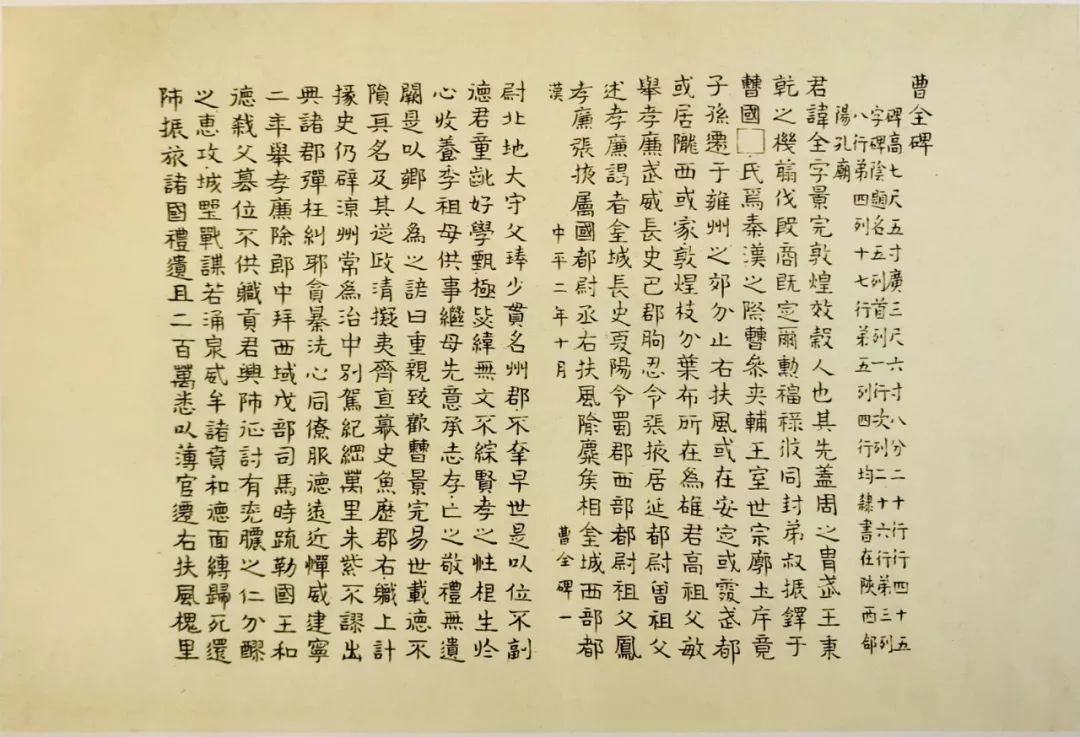 曹全碑
碑高七尺五寸廣三尺六寸八分二十行行四十五
字碑陰題名五列首列一行次列二十六行第三列
八行第四列十七行第五列四行均隸書在陝西郃
陽孔廟
君諱全字景完敦煌效穀人也其先蓋周之胄武王秉
乾之機翦伐殷商既定爾勳福祿攸同封弟叔振鐸于
曹國□氏焉秦漢之際曹參夾輔王室世宗廓土斥竟
子孫遷于雍州之郊分止右扶風或在安定或處武都
或居隴西或家敦煌枝分葉布所在為雄君高祖父敏
舉孝廉武威長史巴郡朐忍令張掖居延都尉曾祖父
述孝廉謁者金城長史夏陽令蜀郡西部都尉祖父鳳
孝廉張掖屬國都尉丞右扶風隃麋侯相金城西部都
漢 中平二年十月 曹全碑一
尉北地大守父琫少貫名州郡不幸早世是以位不副
德君童齔好學甄極毖緯無文不綜賢孝之性根生於
心收養季祖母供事繼母先意承志存亡之敬禮無遺
闕是以鄉人為之諺曰重親致歡曹景完易世載德不
隕其名及其從政清擬夷齊直慕史魚歷郡右職上計
掾史仍辟涼州常為治中別駕紀綱萬里朱紫不謬出
典諸郡彈枉糾邪貪暴洗心同僚服德遠近憚威建寧
二年舉孝廉除郎中拜西域戊部司馬時疏勒國王和
德弒父篡位不供職貢君興師征討有兗膿之仁分醪
之惠攻城野戰謀若涌泉威牟諸賁和德面縛歸死還
師振旅諸國禮遺且二百萬悉以薄官遷右扶風槐里